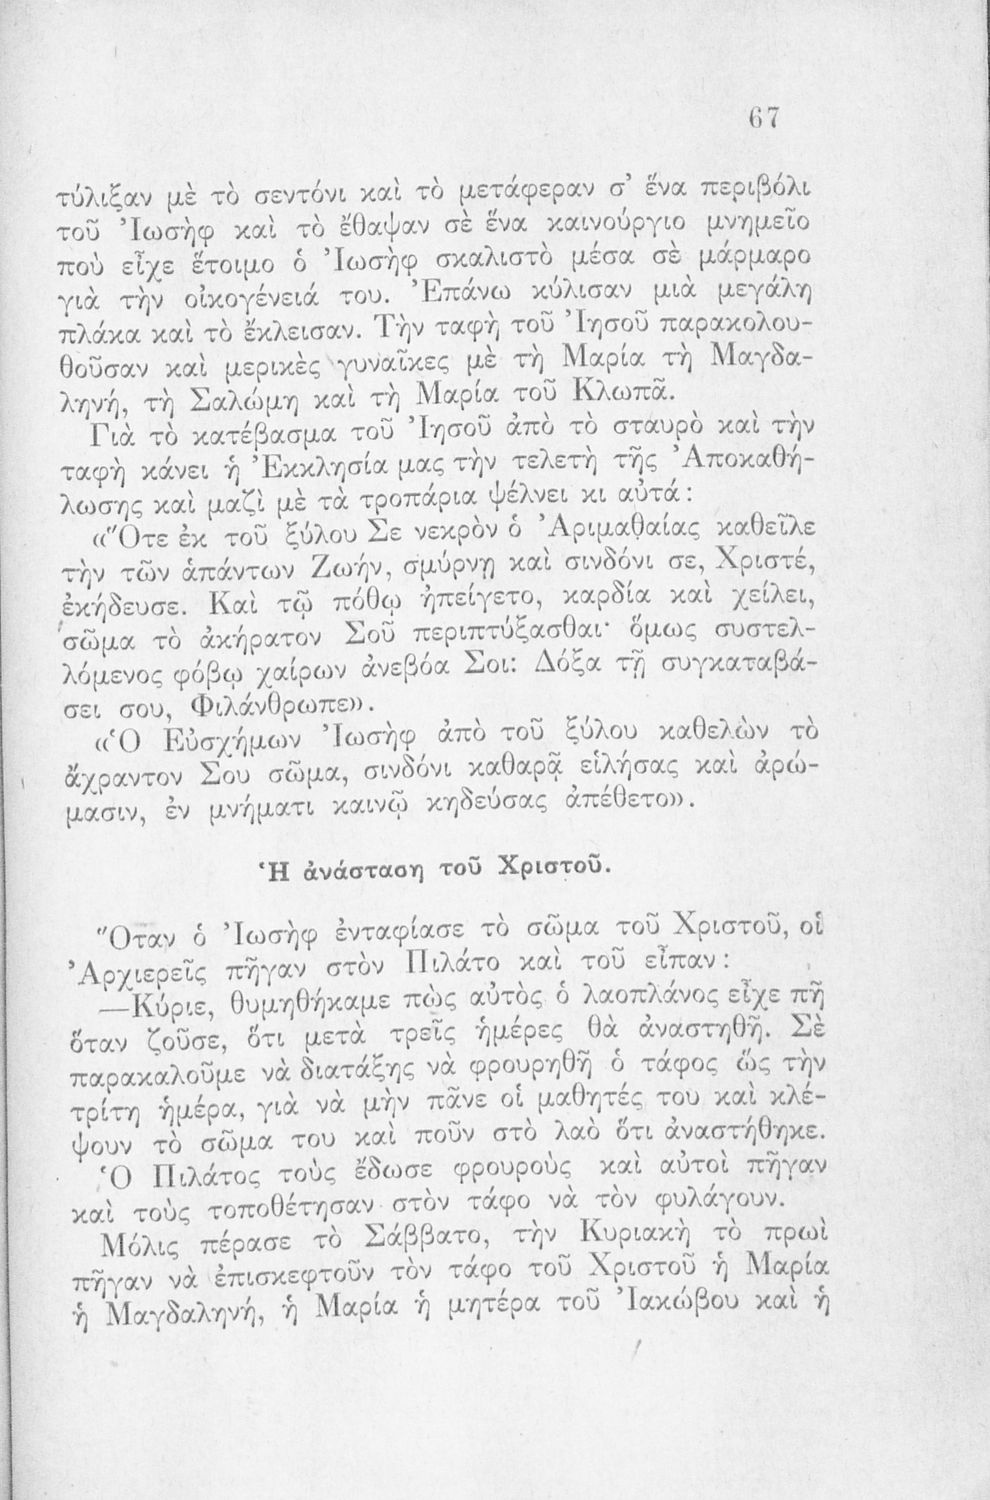 67
τύλιξαν μὲ τὸ σεντόνι καὶ τὸ μετάφεραν σ’ ἕνα περιβόλι
τοῦ Ἰωσὴφ καὶ τὸ ἔθαψαν σὲ ἕνα καινούργιο μνημεῖο
ποὺ εἶχε ἕτοιμο ὁ Ἰωσὴφ σκαλιστὸ μέσα σὲ μάρμαρο
γιὰ τὴν οἰκογένειά του. Ἐπάνω κύλισαν μιὰ μεγάλη
πλάκα καὶ τὸ ἔκλεισαν. Τὴν ταφὴ τοῦ Ἰησοῦ παρακολου-
θοῦσαν καὶ μερικὲς γυναῖκες μὲ τὴ Μαρία τὴ Μαγδα-
ληνή, τὴ Σαλώμη καὶ τὴ Μαρία τοῦ Κλωπᾶ.
Γιὰ τὸ κατέβασμα τοῦ Ἰησοῦ ἀπὸ τὸ σταυρὸ καὶ τὴν
ταφὴ κάνει ἡ Ἐκκλησία μας τὴν τελετὴ τῆς Ἀποκαθή-
λωσης καὶ μαζὶ μὲ τὰ τροπάρια ψέλνει κι αὐτά:
«Ὅτε ἐκ τοῦ ξύλου Σε νεκρὸν ὁ Ἀριμαθαίας καθεῖλε
τὴν τῶν ἁπάντων Ζωήν, σμύρνῃ καὶ σινδόνι σε, Χριστέ,
ἐκήδευσε. Καὶ τῷ πόθῳ ἠπείγετο, καρδία καὶ χείλει,
σῶμα τὸ ἀκήρατον Σοῦ περιπτύξασθαι· ὅμως συστελ-
λόμενος φόβῳ χαίρων ἀνεβόα Σοι: Δόξα τῇ συγκαταβά-
σει σου, Φιλάνθρωπε».
«Ὁ Εὐσχήμων Ἰωσὴφ ἀπὸ τοῦ ξύλου καθελὼν τὸ
ἄχραντον Σου σῶμα, σινδόνι καθαρᾷ εἱλήσας καὶ ἀρώ-
μασιν, ἐν μνήματι καινῷ κηδεύσας ἀπέθετο».
Ἡ ἀνάσταση τοῦ Χριστοῦ.
Ὅταν ὁ Ἰωσὴφ ἐνταφίασε τὸ σῶμα τοῦ Χριστοῦ, οἱ
Ἀρχιερεῖς πῆγαν στὸν Πιλάτο καὶ τοῦ εἶπαν:
—Κύριε, θυμηθήκαμε πὼς αὐτὸς ὁ λαοπλάνος εἶχε πῆ
ὅταν ζοῦσε, ὅτι μετὰ τρεῖς ἡμέρες θὰ ἀναστηθῆ. Σὲ
παρακαλοῦμε νὰ διατάξης νὰ φρουρηθῆ ὁ τάφος ὥς τὴν
τρίτη ἡμέρα, γιὰ νὰ μὴν πᾶνε οἱ μαθητές του καὶ κλέ-
ψουν τὸ σῶμα του καὶ ποῦν στὸ λαὸ ὅτι ἀναστήθηκε.
Ὁ Πιλάτος τοὺς ἔδωσε φρουροὺς καὶ αὐτοὶ πῆγαν
καὶ τοὺς τοποθέτησαν στὸν τάφο νὰ τὸν φυλάγουν.
Μόλις πέρασε τὸ Σάββατο, τὴν Κυριακὴ τὸ πρωὶ
πῆγαν νὰ ἐπισκεφτοῦν τὸν τάφο τοῦ Χριστοῦ ἡ Μαρία
ἡ Μαγδαληνή, ἡ Μαρία ἡ μητέρα τοῦ Ἰακώβου καὶ ἡ